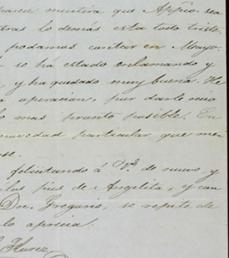 parece mentira que
tras lo demás esta todo listo
podamos cantar en Mayo.
se ha estado reclamando y
y ha quedado muy buena. He
operacion, por darle me
lo mas pronto posible. En
novedad particular que me
se.
felicitando á Vd. de nuevo y
los pies de Angelita, y con
Dn. Gregorio, se repite de
lo aprecia